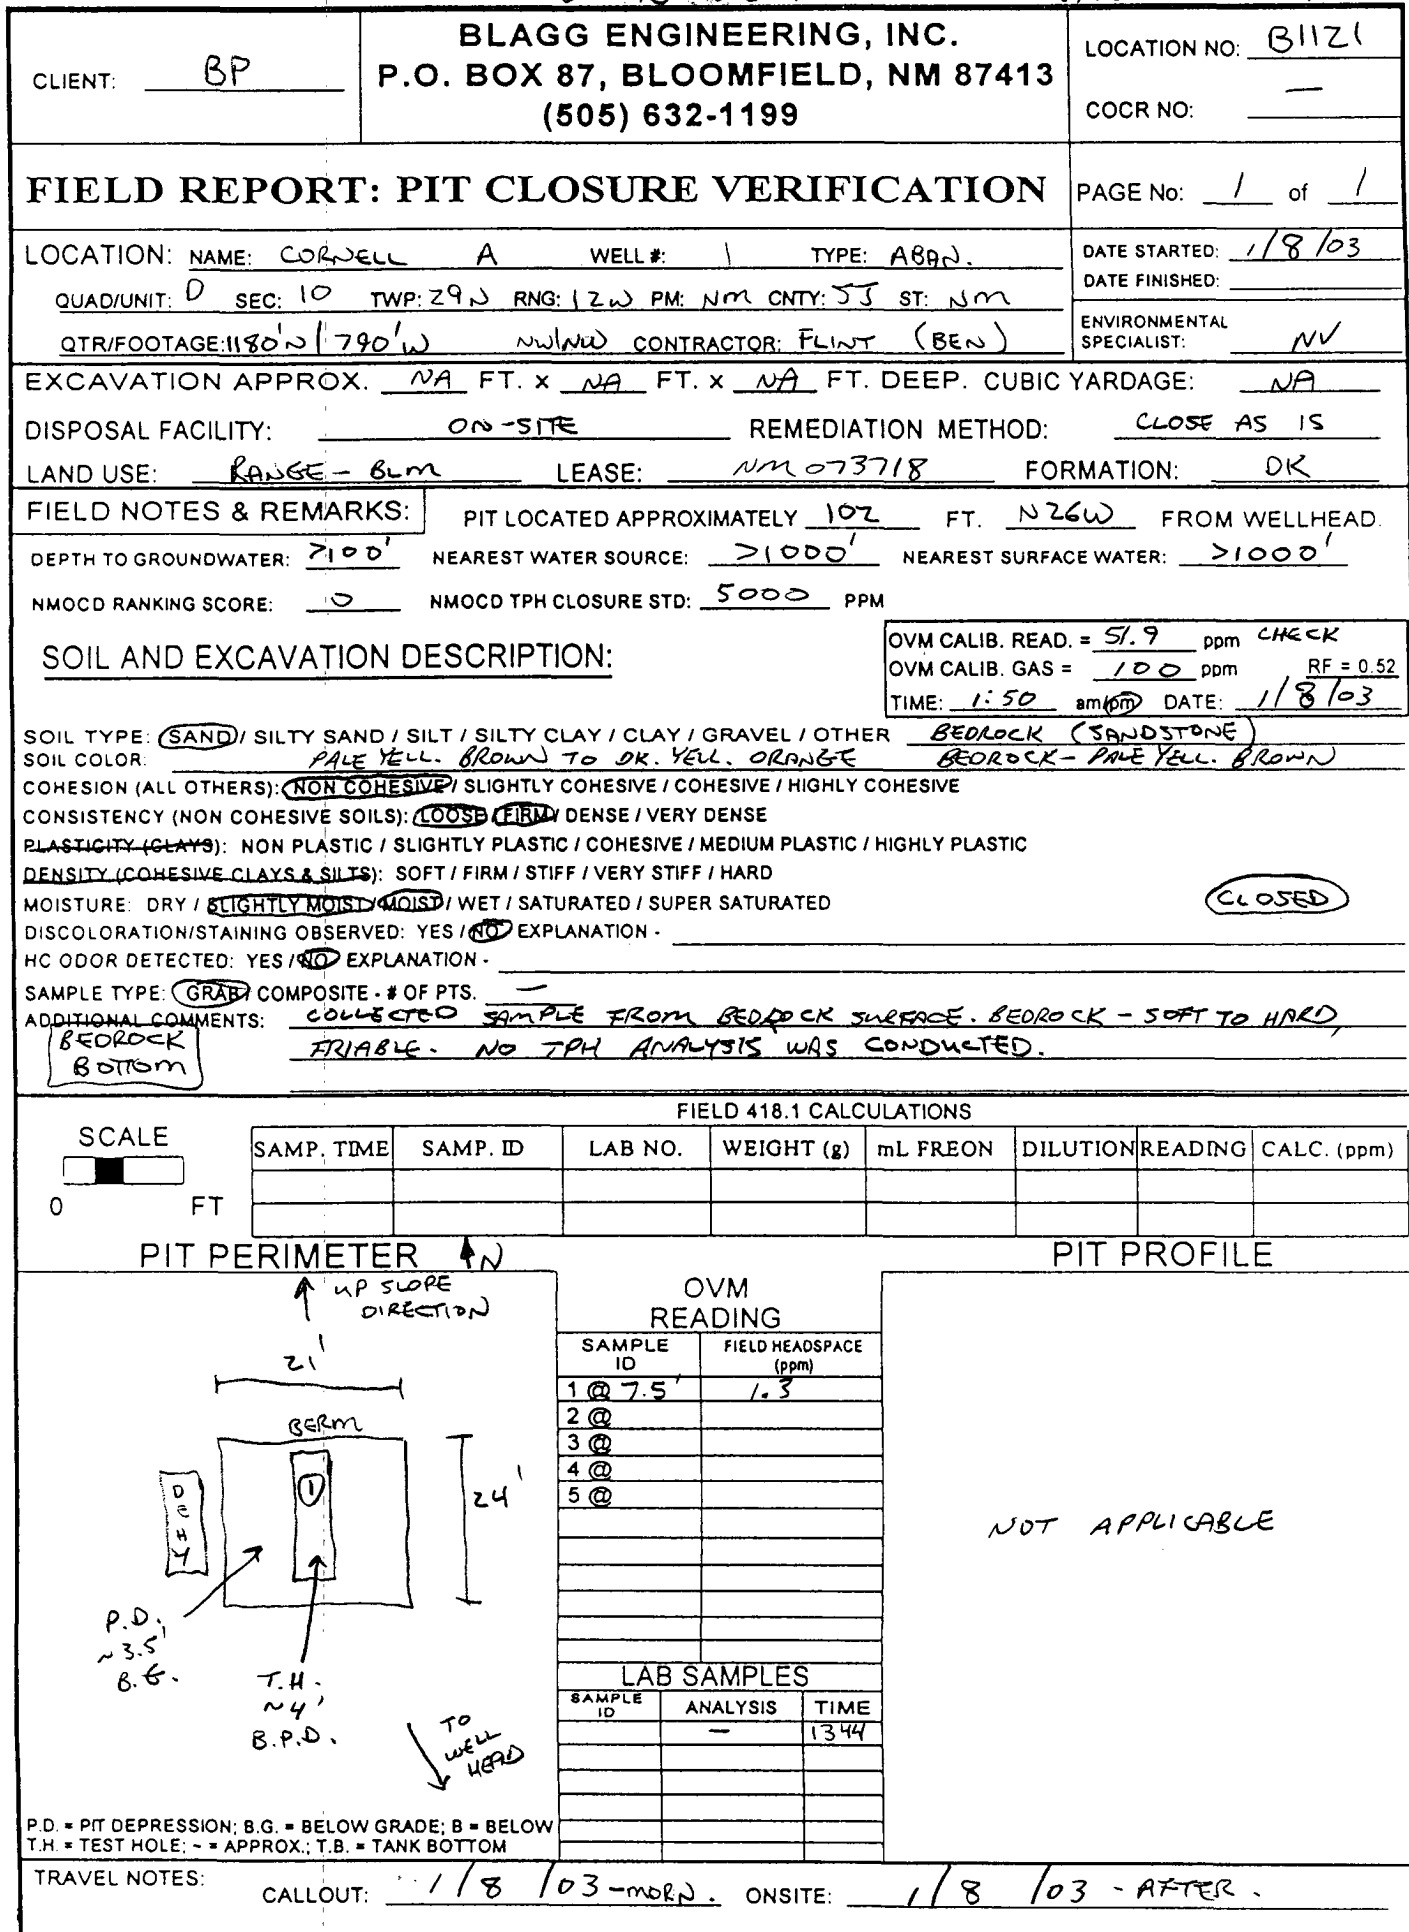 CLIENT: BP
BLAGG ENGINEERING, INC.
P.O. BOX 87, BLOOMFIELD, NM 87413
(505) 632-1199
LOCATION NO: B1121
COCR NO: —
FIELD REPORT: PIT CLOSURE VERIFICATION
PAGE No: 1 of 1
LOCATION: NAME: CORNELL A WELL #: 1 TYPE: ABAN.
QUAD/UNIT: D SEC: 10 TWP: 29N RNG: 12W PM: NM CNTY: SJ ST: NM
QTR/FOOTAGE: 1180'N / 790'W NW/NW CONTRACTOR: FLINT (BEN)
DATE STARTED: 1/8/03
DATE FINISHED:
ENVIRONMENTAL
SPECIALIST: NV
EXCAVATION APPROX. NA FT. x NA FT. x NA FT. DEEP. CUBIC YARDAGE: NA
DISPOSAL FACILITY: ON-SITE REMEDIATION METHOD: CLOSE AS IS
LAND USE: RANGE - BLM LEASE: NM 073718 FORMATION: DK
FIELD NOTES & REMARKS: PIT LOCATED APPROXIMATELY 102 FT. N26W FROM WELLHEAD.
DEPTH TO GROUNDWATER: >100' NEAREST WATER SOURCE: >1000' NEAREST SURFACE WATER: >1000'
NMOCD RANKING SCORE: 0 NMOCD TPH CLOSURE STD: 5000 PPM
SOIL AND EXCAVATION DESCRIPTION:
OVM CALIB. READ. = 51.9 ppm CHECK
OVM CALIB. GAS = 100 ppm RF = 0.52
TIME: 1:50 am/pm DATE: 1/8/03
SOIL TYPE: SAND / SILTY SAND / SILT / SILTY CLAY / CLAY / GRAVEL / OTHER BEDROCK (SANDSTONE)
SOIL COLOR: PALE YELL. BROWN TO DK. YELL. ORANGE BEDROCK - PALE YELL. BROWN
COHESION (ALL OTHERS): NON COHESIVE / SLIGHTLY COHESIVE / COHESIVE / HIGHLY COHESIVE
CONSISTENCY (NON COHESIVE SOILS): LOOSE / FIRM / DENSE / VERY DENSE
PLASTICITY (CLAYS): NON PLASTIC / SLIGHTLY PLASTIC / COHESIVE / MEDIUM PLASTIC / HIGHLY PLASTIC
DENSITY (COHESIVE CLAYS & SILTS): SOFT / FIRM / STIFF / VERY STIFF / HARD
MOISTURE: DRY / SLIGHTLY MOIST / MOIST / WET / SATURATED / SUPER SATURATED CLOSED
DISCOLORATION/STAINING OBSERVED: YES / NO EXPLANATION -
HC ODOR DETECTED: YES / NO EXPLANATION -
SAMPLE TYPE: GRAB / COMPOSITE - # OF PTS. —
ADDITIONAL COMMENTS: COLLECTED SAMPLE FROM BEDROCK SURFACE. BEDROCK - SOFT TO HARD,
FRIABLE. NO TPH ANALYSIS WAS CONDUCTED.
BEDROCK
BOTTOM
FIELD 418.1 CALCULATIONS
SCALE
0 FT
SAMP. TIME SAMP. ID LAB NO. WEIGHT (g) mL FREON DILUTION READING CALC. (ppm)
PIT PERIMETER N
PIT PROFILE
UP SLOPE
DIRECTION
21'
BERM
DEHY
1
24'
P.D.
~3.5'
B.G.
T.H.
~4'
B.P.D.
TO
WELL
HEAD
OVM
READING
SAMPLE
ID
FIELD HEADSPACE
(ppm)
1 @ 7.5' 1.3
2 @
3 @
4 @
5 @
NOT APPLICABLE
LAB SAMPLES
SAMPLE
ID
ANALYSIS TIME
— 1344
P.D. = PIT DEPRESSION; B.G. = BELOW GRADE; B = BELOW
T.H. = TEST HOLE; ~ = APPROX.; T.B. = TANK BOTTOM
TRAVEL NOTES: CALLOUT: 1/8/03 - MORN. ONSITE: 1/8/03 - AFTER.